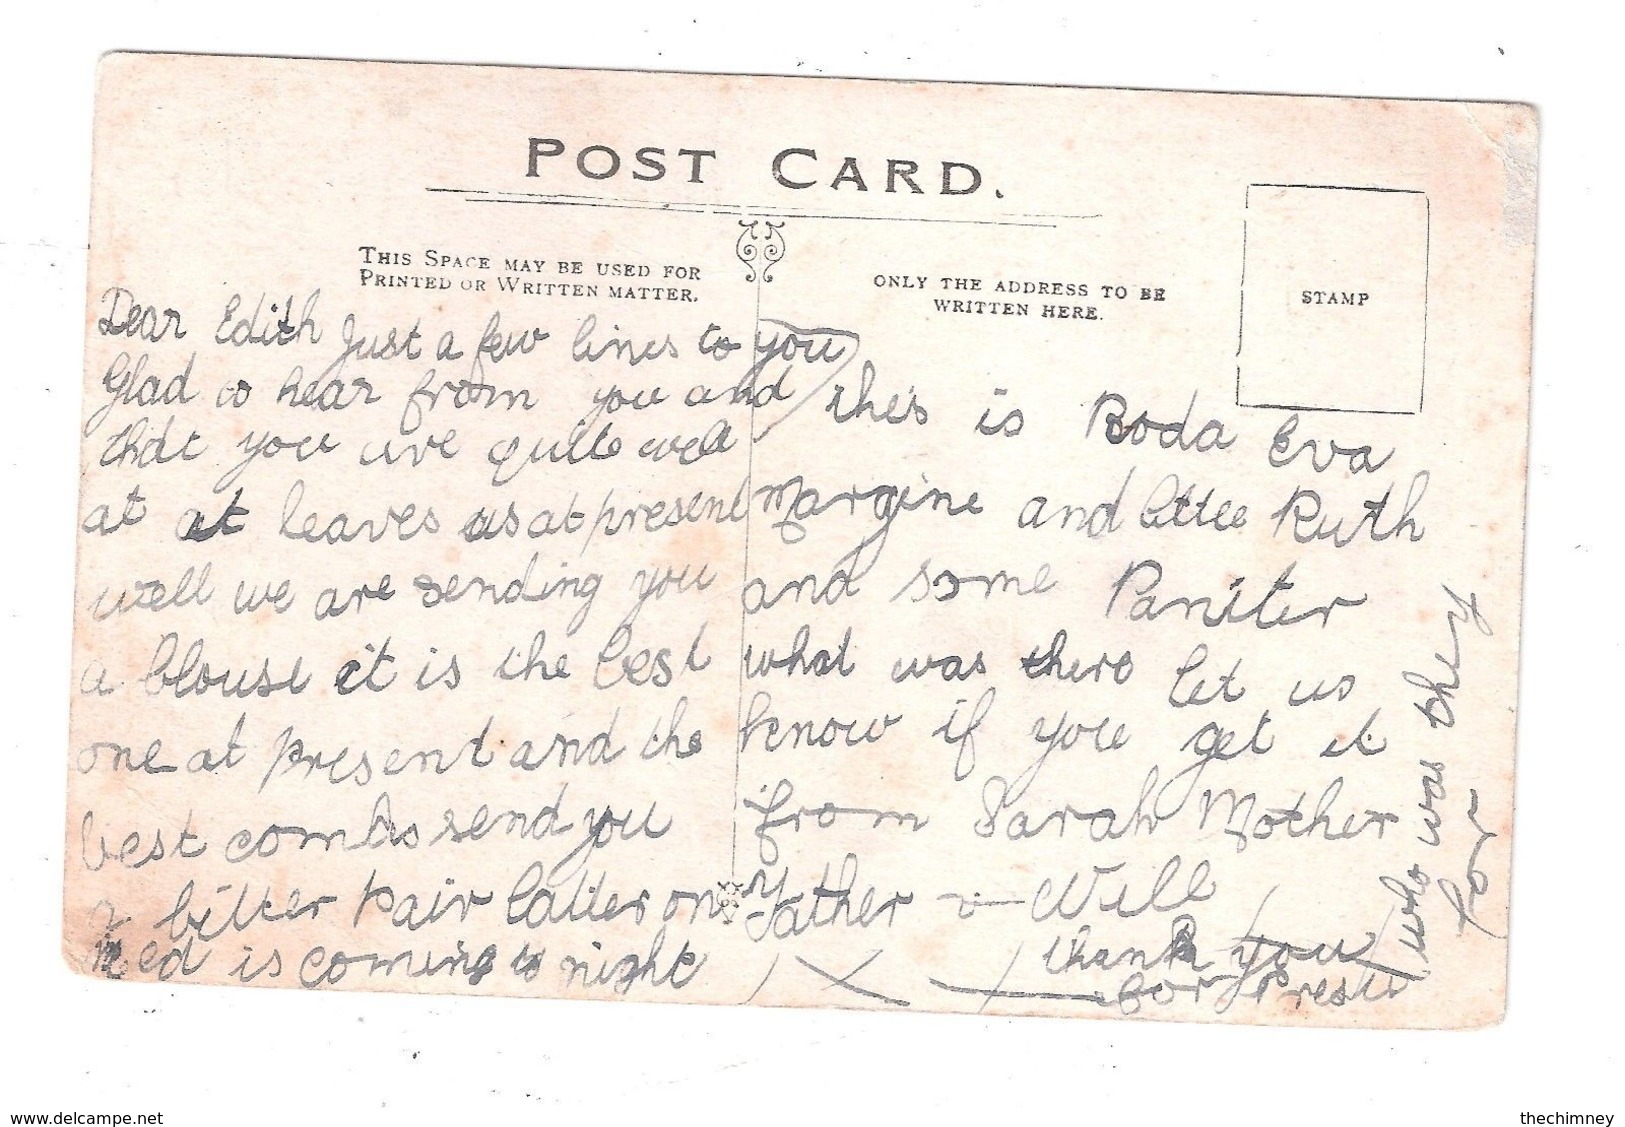 POST CARD.
THIS SPACE MAY BE USED FOR
PRINTED OR WRITTEN MATTER.
ONLY THE ADDRESS TO BE
WRITTEN HERE.
STAMP
Dear Edith Just a few lines to you
Glad to hear from you and
that you are quite well
at at leaves us at present
well we are sending you
a blouse it is the best
one at present and the
best combs send you
a bitter pair latter on
Ned is coming to night
this is Roda Eva
Margine and little Ruth
and some Paniter
what was there let us
know if you get it
from Sarah Mother
Father Will
thank you
for Presu
who was they
for
www.delcampe.net
thechimney